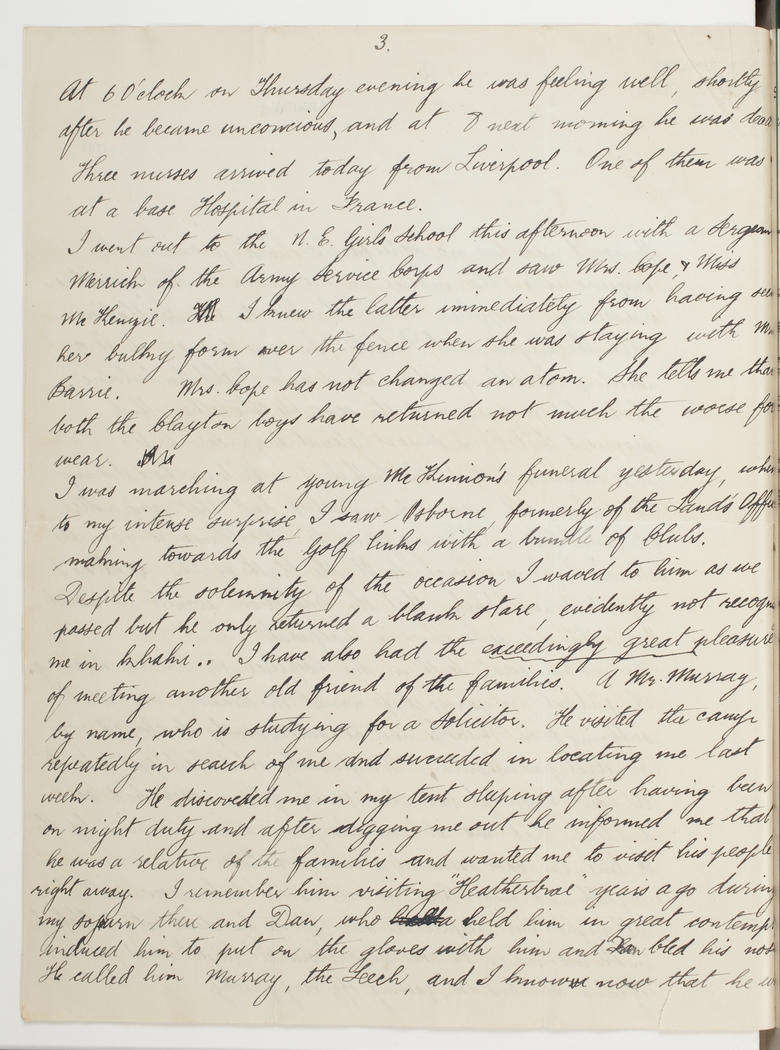 3.
At 6 O'clock on Thursday evening he was feeling well, shortly
after he became unconcious, and at 8 next morning he was dead
Three nurses arrived today from Liverpool. One of them was
at a base Hospital in France.
I went out to the N.E. Girls School this afternoon with a Sergeant
Merrick of the Army Service Corps and saw Mrs. Cope, & Miss
Mc Kenzie. I knew the latter immediately from having seen
her bulky form over the fence when she was staying with
Barrie. Mrs. Cope has not changed an atom. She tells me that
both the Clayton boys have returned not much the worse for
wear.
I was marching at young Mc Kinnon's funeral yesterday, when
to my intense surprise I saw Osborne, formerly of the Lands Office
making towards the Golf links with a bundle of Clubs.
Despite the solemnity of the occasion I waved to him as we
passed but he only returned a blank stare, evidently not
me in khaki.. I have also had the exceedingly great pleasure
of meeting another old friend of the families. A Mr. Murray,
by name, who is studying for a Solicitor. He visited the camp
repeatedly in search of me and succeeded in locating me last
week. He discoveded me in my tent sleeping after having been
on night duty and after digging me out he informed me that
he was a relative of the families and wanted me to visit his people
right away. I remember him visiting "Heatherbrae" years ago during
my sojourn there and Dan, who held him in great contempt
induced him to put on the gloves with him and Dan bled his nose
He called him Murray, the Leech, and I know now that he